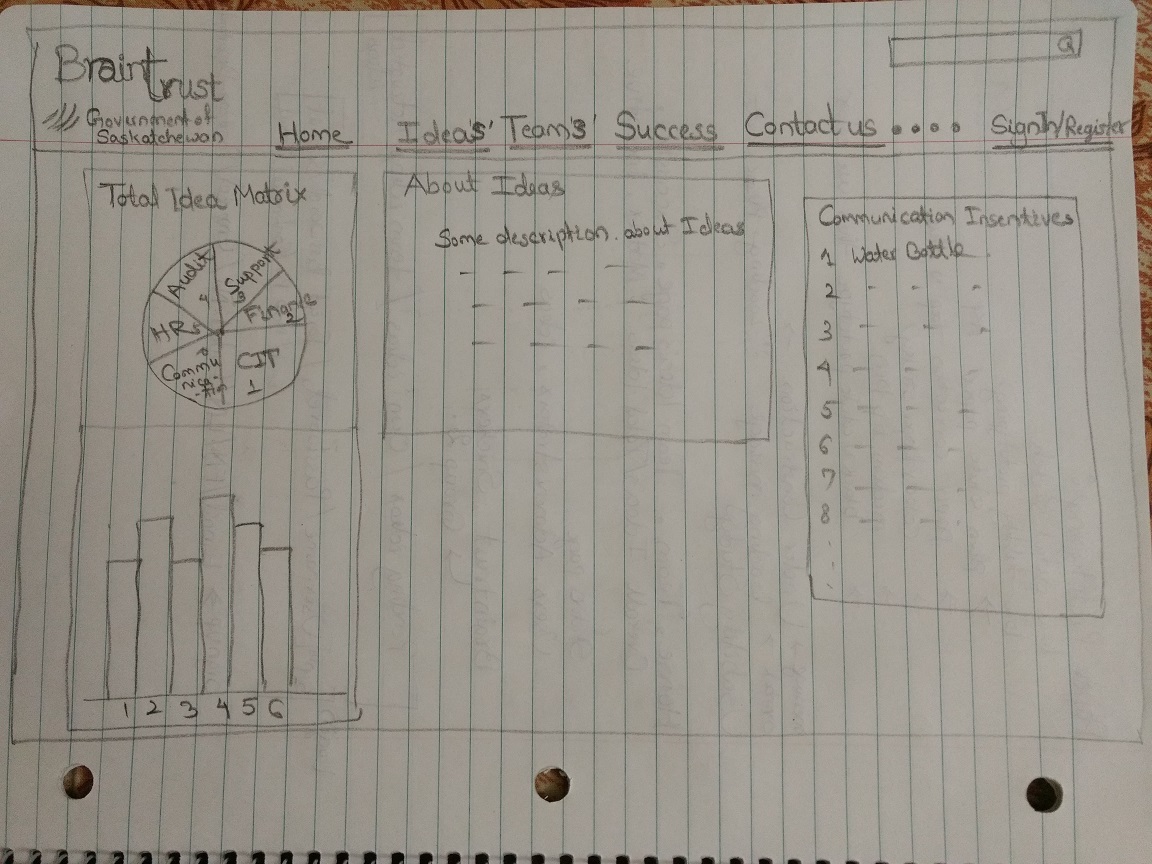 Braintrust
Q
Government of
Saskatchewan
Home Ideas' Team's' Success Contact us .... SignIn/Register
Total Idea Matrix
Audit 4
Support 3
Finance 2
HR 5
CIT
1
Commu
nica-
-tion
6
About Ideas
Some description. about Ideas
Communication Insentives
1 Water Bottle
2
3
4
5
6
7
8
1 2 3 4 5 6